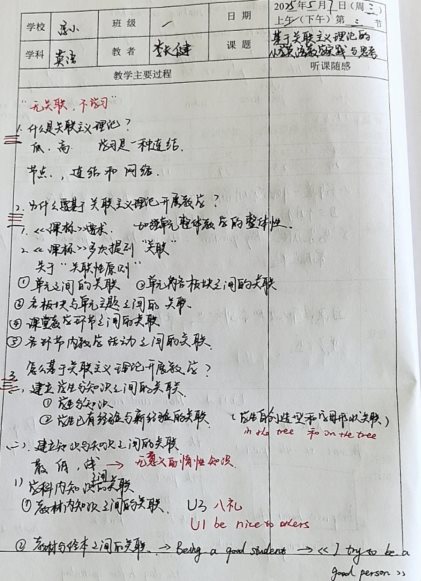 学校 高小 班级 一 日期 2025年5月7日（周三） 上午（下午）第二节
学科 英语 教者 课题 基于关联主义理论的小学英语教学实践与思考
教学主要过程 听课随感
"无关联，不学习"
1. 什么是关联主义理论？
学习是一种连结.
节点.，连结和网络.
2. 为什么要基于关联主义理论开展教学？
1. 《课标》要求. 加强单元整体教学的整体性.
2. 《课标》多次提到"关联"
关于"关联性原则"
① 单元之间的关联 ② 单元内各板块之间的关联
③ 各板块与单元主题之间的关联
④ 课堂教学环节之间的关联
⑤ 各环节内教学活动之间的关联.
3. 怎么基于关联主义理论开展教学？
一、建立学生与知识之间的关联.
① 学生与知识
② 学生已有经验与新经验的关联.
in the tree 和 on the tree
(二) 建立知识与知识之间的关联.
→ 无意义的惰性知识
1) 学科内知识之间的关联
① 教材内知识之间的关联. U3 八礼
U1 be nice to others
② 教材与绘本之间的关联. → Being a good student → 《I try to be a
good person》